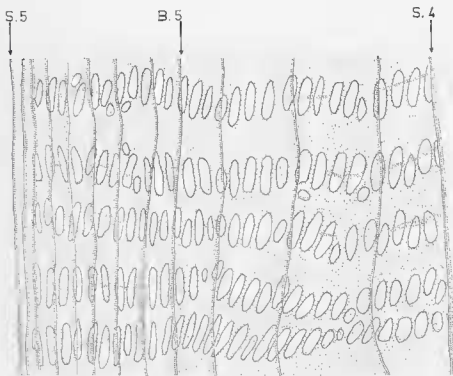 S.5 B.5 S.4